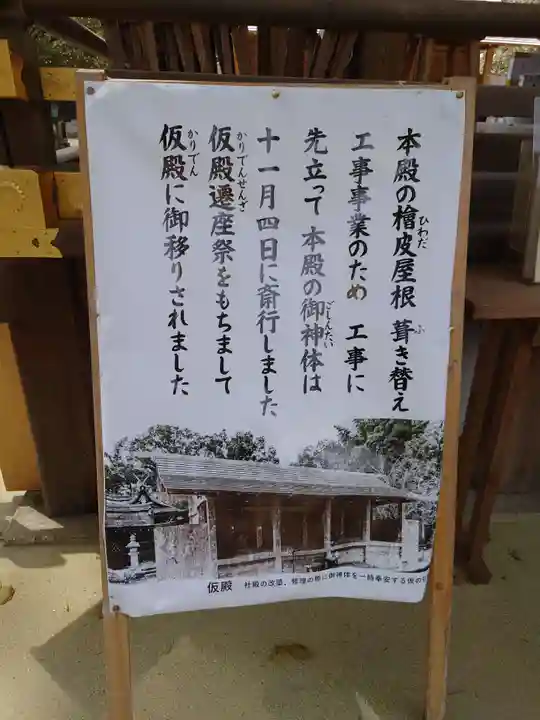 本殿の檜皮屋根 葺き替え
ひわだ
ふ
工事事業のため 工事に
先立って 本殿の御神体は
ごしんたい
十一月四日に斎行しました
仮殿遷座祭をもちまして
かりでんせんざ
仮殿に御移りされました
かりでん
仮殿 社殿の改築、修理の際に御神体を一時奉安する仮の